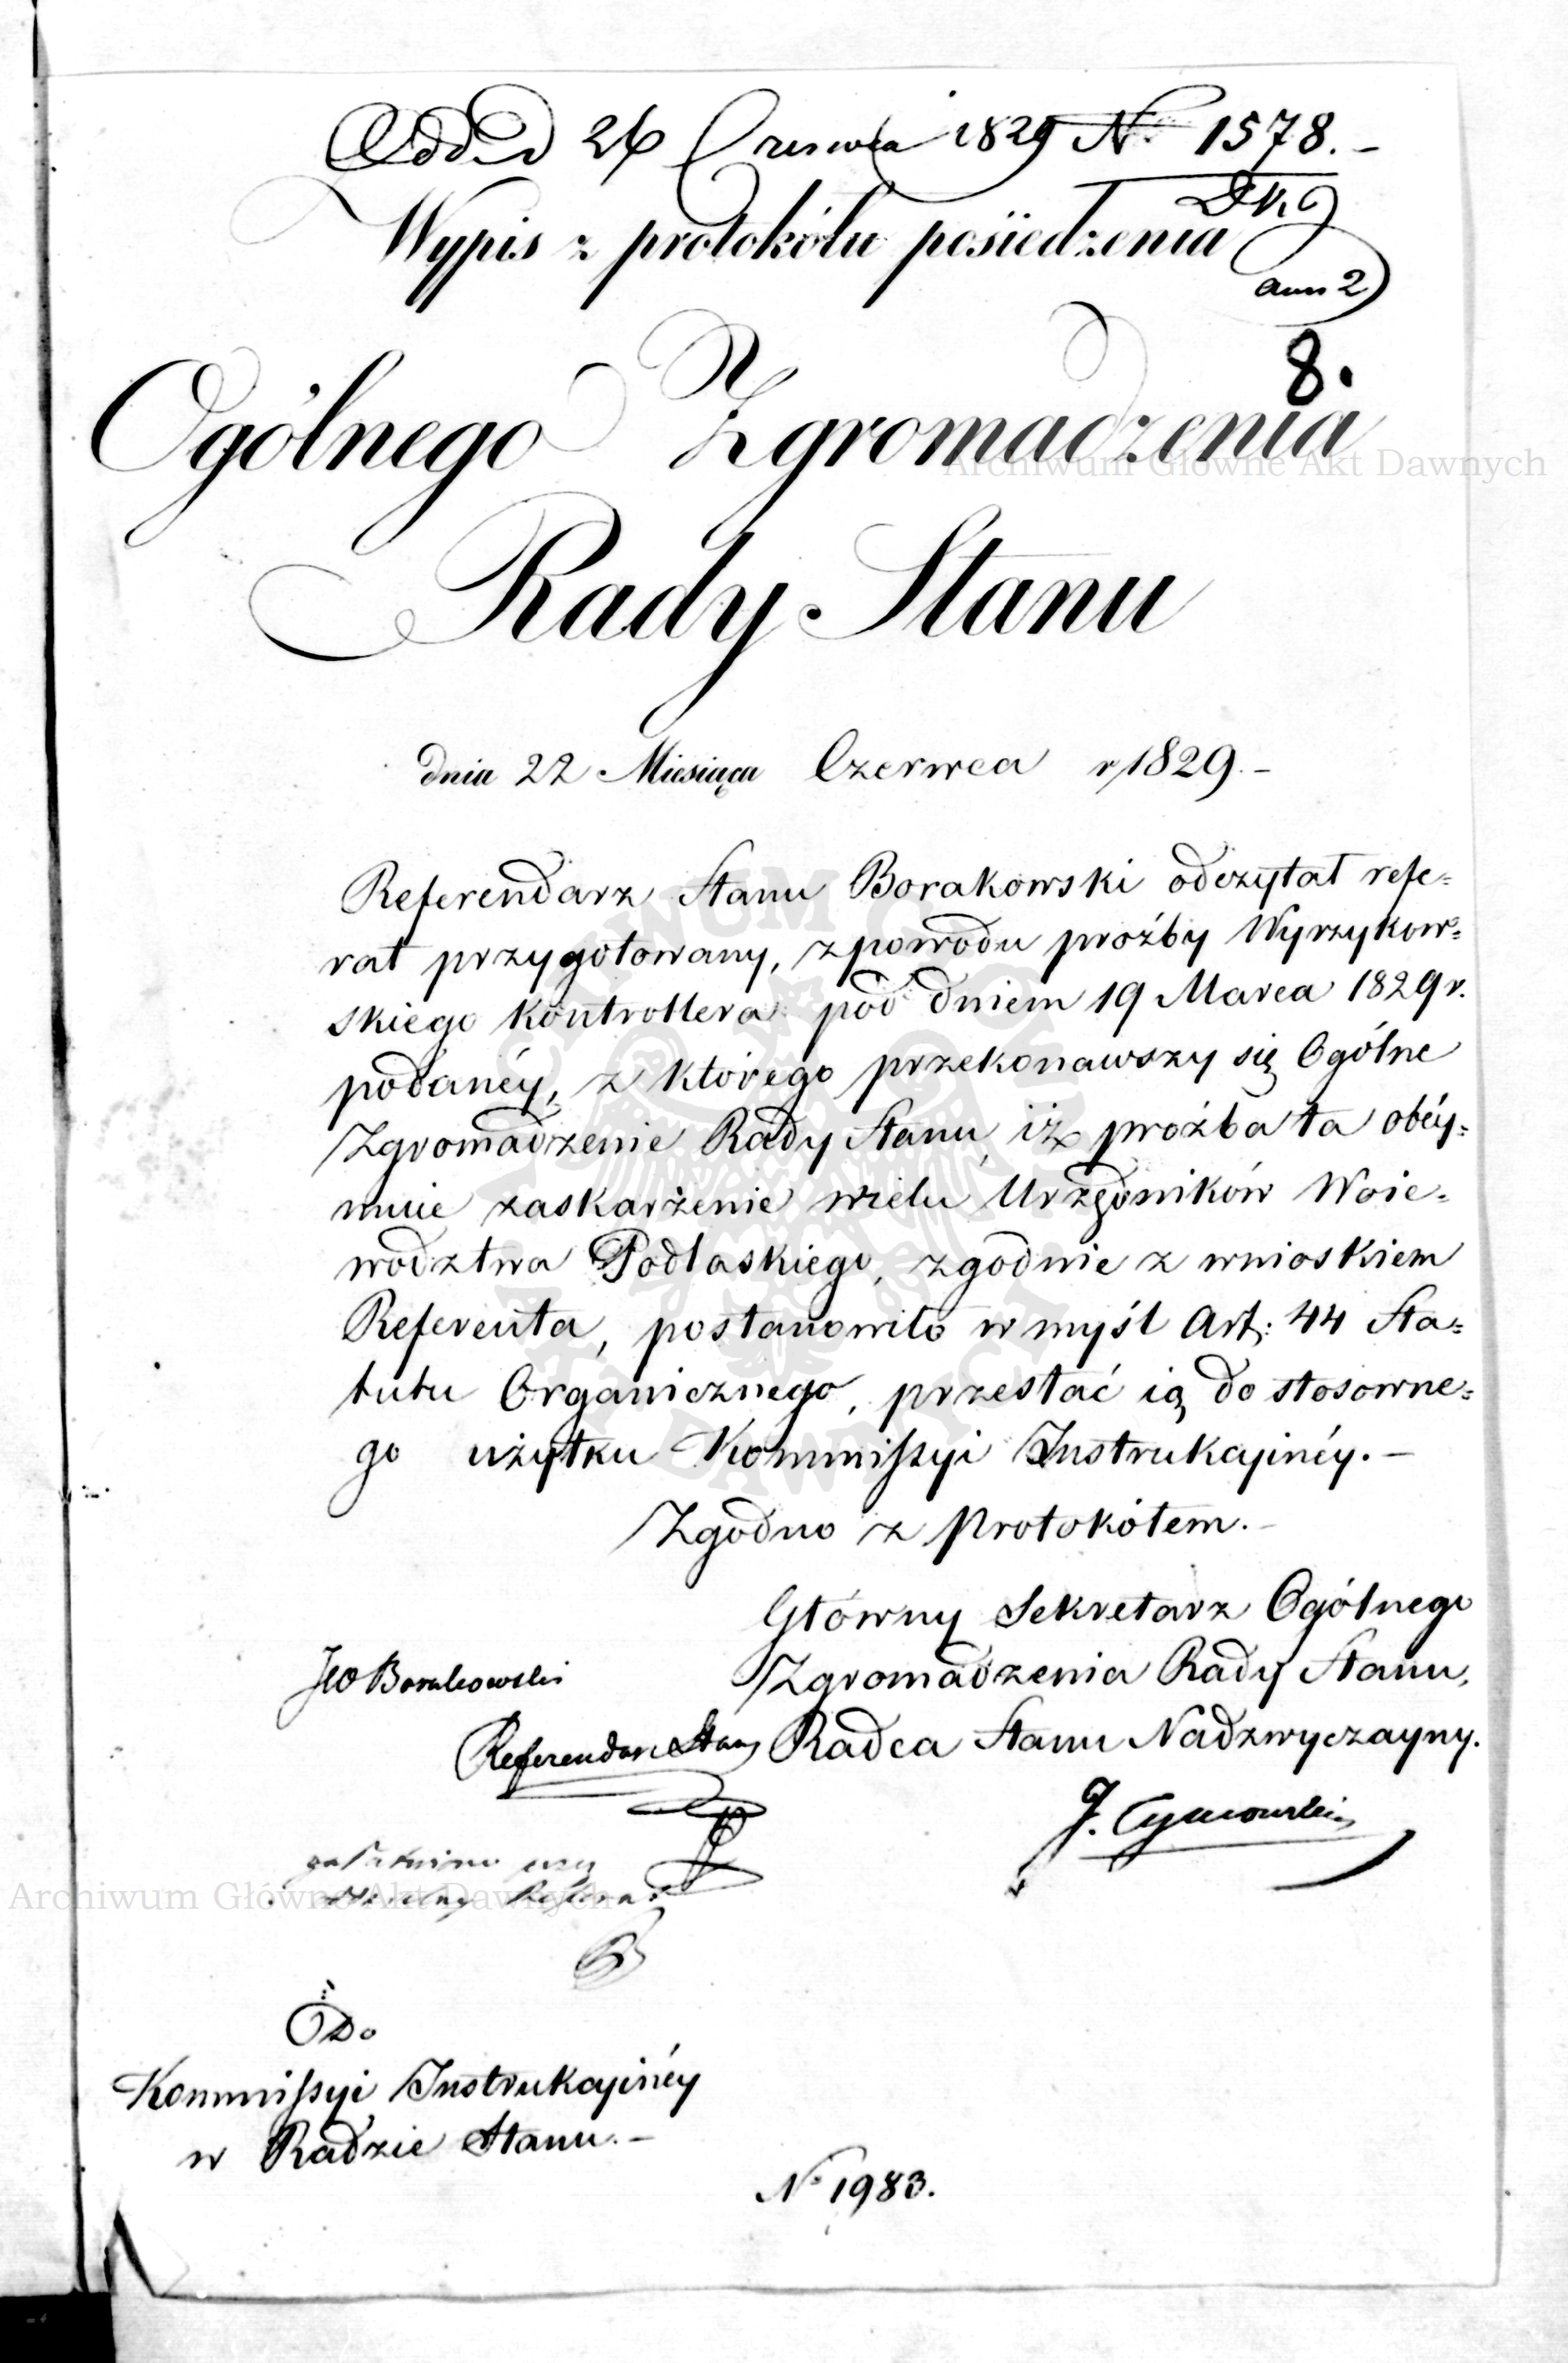 Odd. d 26 Czerwca 1829 N° 1578.-
Wypis z protokółu posiedzenia
ann 2
8.
Ogólnego Zgromadzenia
Archiwum Główne Akt Dawnych
Rady Stanu
dnia 22 Miesiąca Czerwca r 1829.-
Referendarz Stanu Borakowski odczytał refe=
rat przygotowany, z powodu proźby Wyrzykow=
skiego Kontrollera pod dniem 19 Marca 1829 r.
podanéy, z którego przekonawszy się Ogólne
Zgromadzenie Rady Stanu, iż proźba ta obéy=
muie zaskarżenie wielu Urzędników Woie=
wodztwa Podlaskiego, zgodnie z wnioskiem
Referenta, postanowiło w myśl Art: 44 Sta=
tutu Organicznego, przesłać ią do stosowne=
go użytku Kommissyi Instrukcyinéy.-
Zgodno z Protokółem.-
Główny Sekretarz Ogólnego
Zgromadzenia Rady Stanu,
Radca Stanu Nadzwyczayny.
Borakowski
Referendarz Stanu
J. Tymowski
Archiwum Główne Akt Dawnych
Do
Kommissyi Instrukcyinéy
w Radzie Stanu.-
N° 1983.